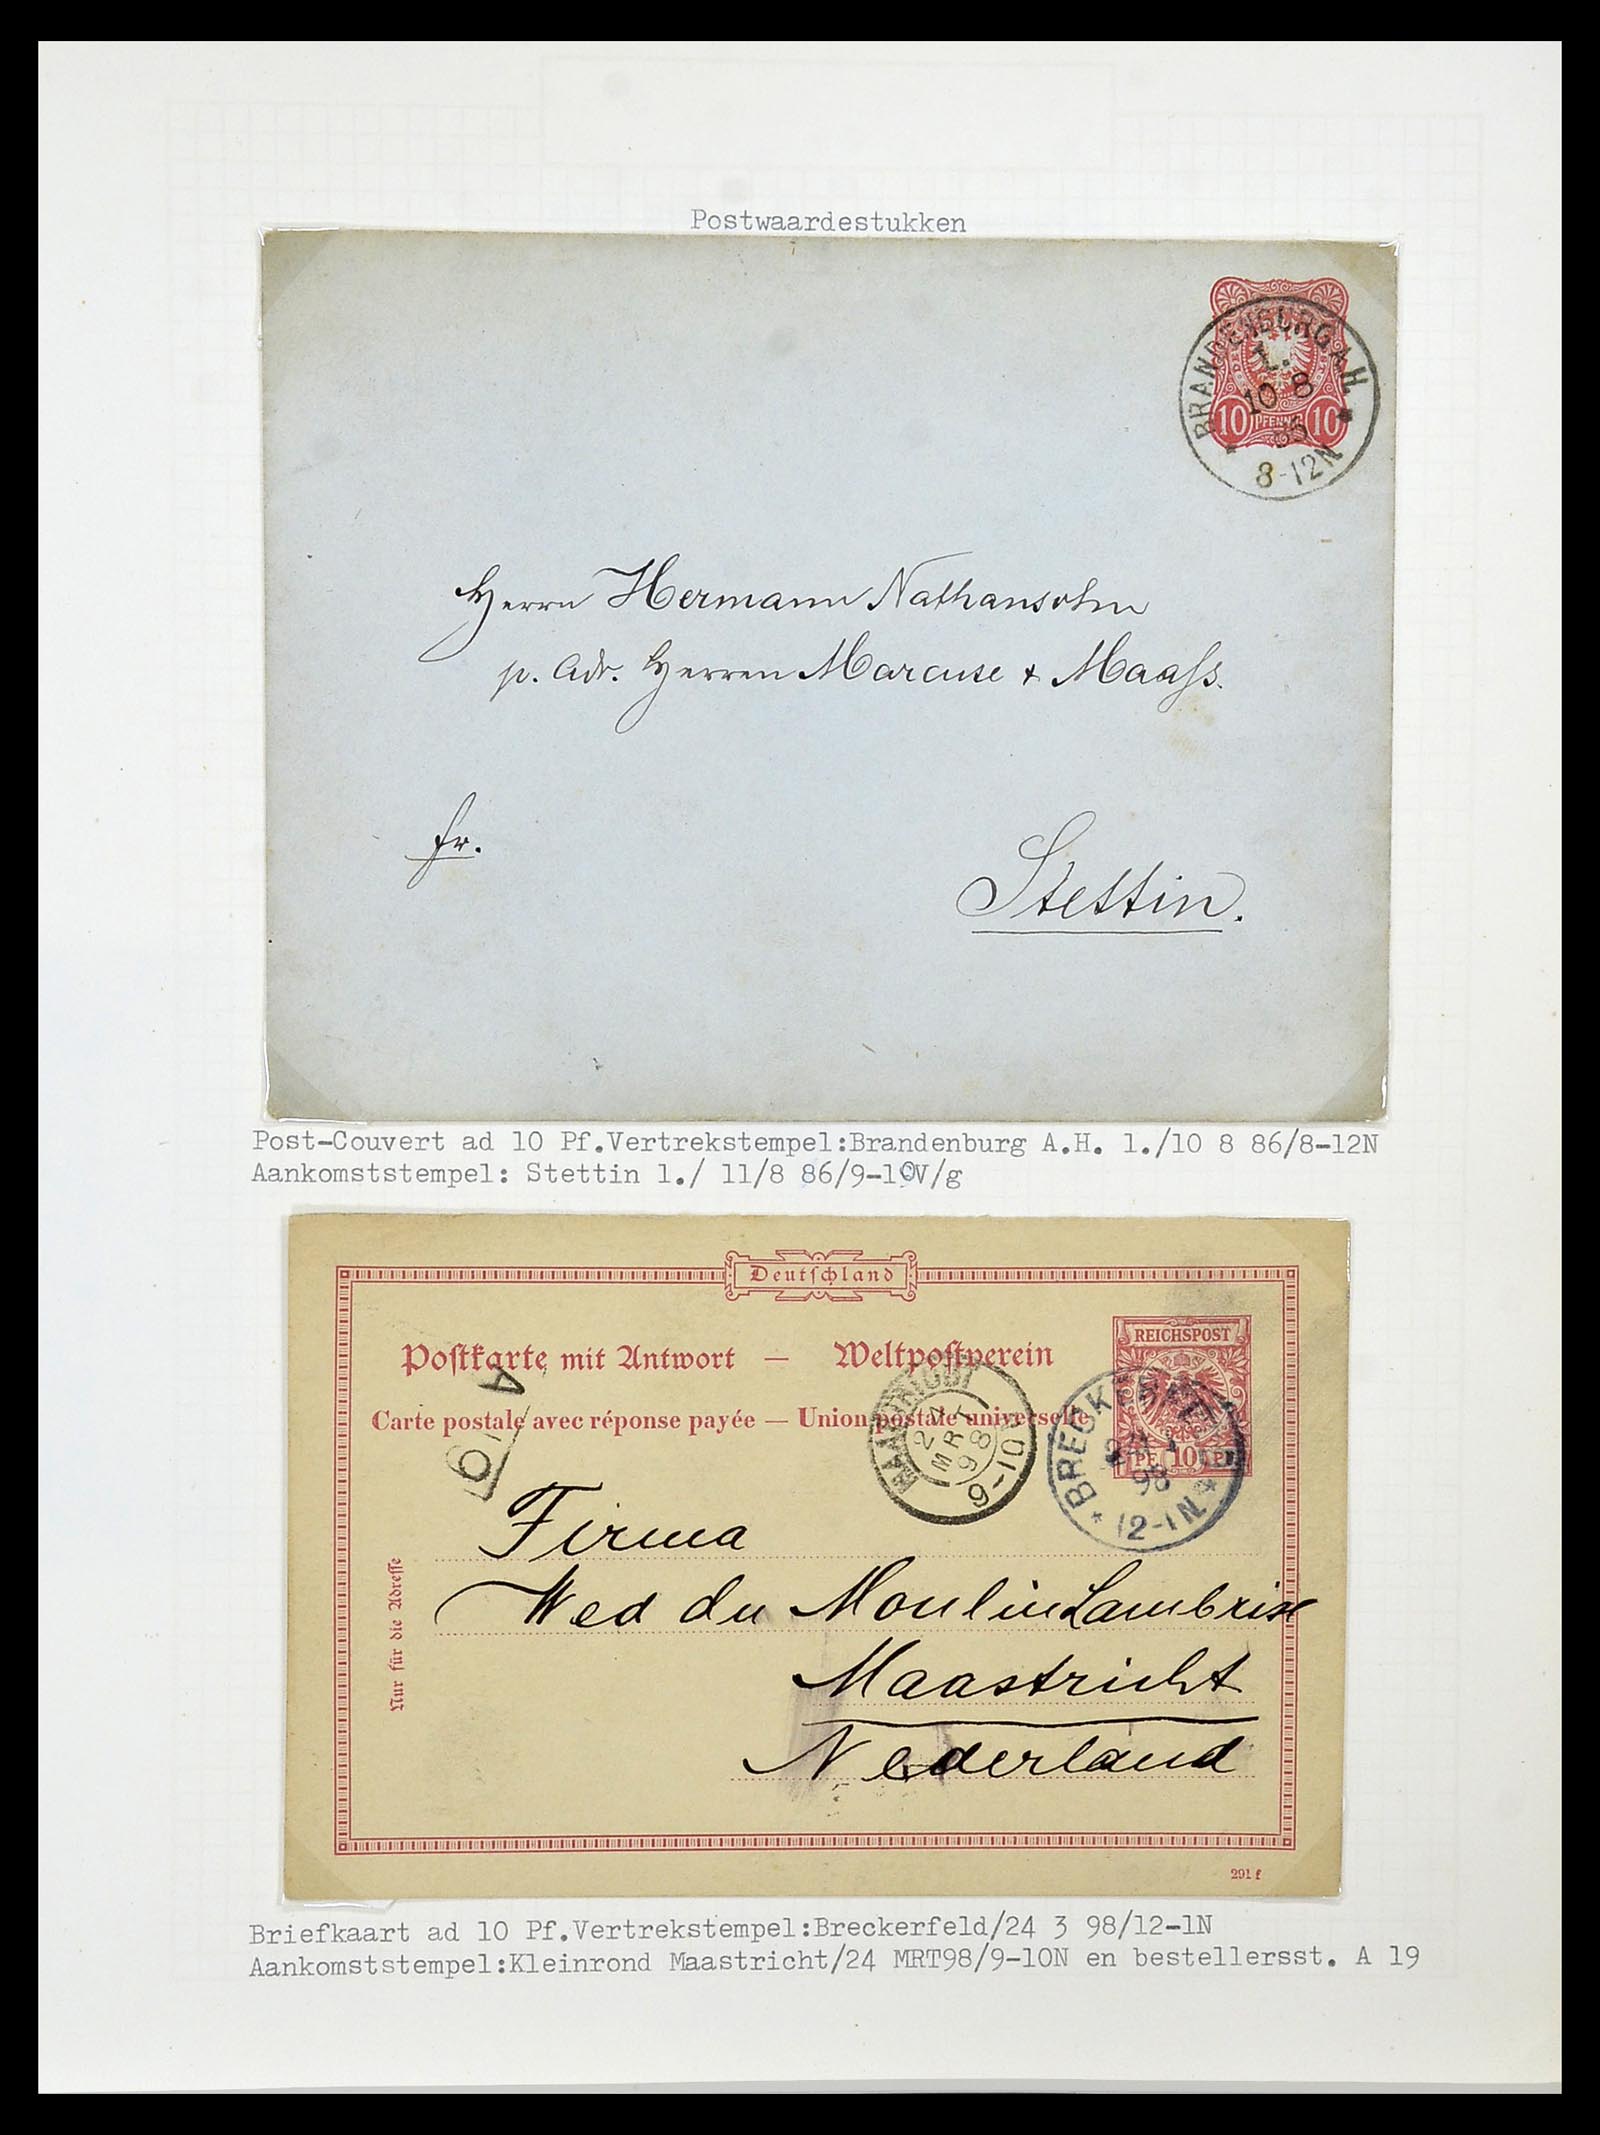 Postwaardestukken
BRANDENBURG A.H.
1.
10 8
86
8-12N
10 PFENNIG 10
Herrn Hermann Nathansohn
p. Adr. Herren Marcuse & Maaß.
fr.
Stettin.
Post-Couvert ad 10 Pf.Vertrekstempel:Brandenburg A.H. 1./10 8 86/8-12N
Aankomststempel: Stettin 1./ 11/8 86/9-10V/g
Deutschland
Postkarte mit Antwort — Weltpostverein
REICHSPOST
Carte postale avec réponse payée — Union postale universelle
PF. 10 PF.
A
19
MAASTRICHT
24
MRT
98
9-10N
BRECKERFELD
24 3
98
12-1N
Firma
Wed du Moulin Lambrix
Maastricht
Nederland
Nur für die Adresse
291 f
Briefkaart ad 10 Pf.Vertrekstempel:Breckerfeld/24 3 98/12-1N
Aankomststempel:Kleinrond Maastricht/24 MRT98/9-10N en bestellersst. A 19